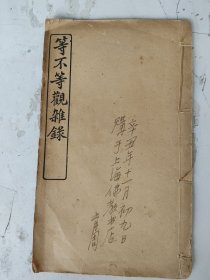 等不等觀雜錄
辛丑年十一月初九日
購于上海佛教書店